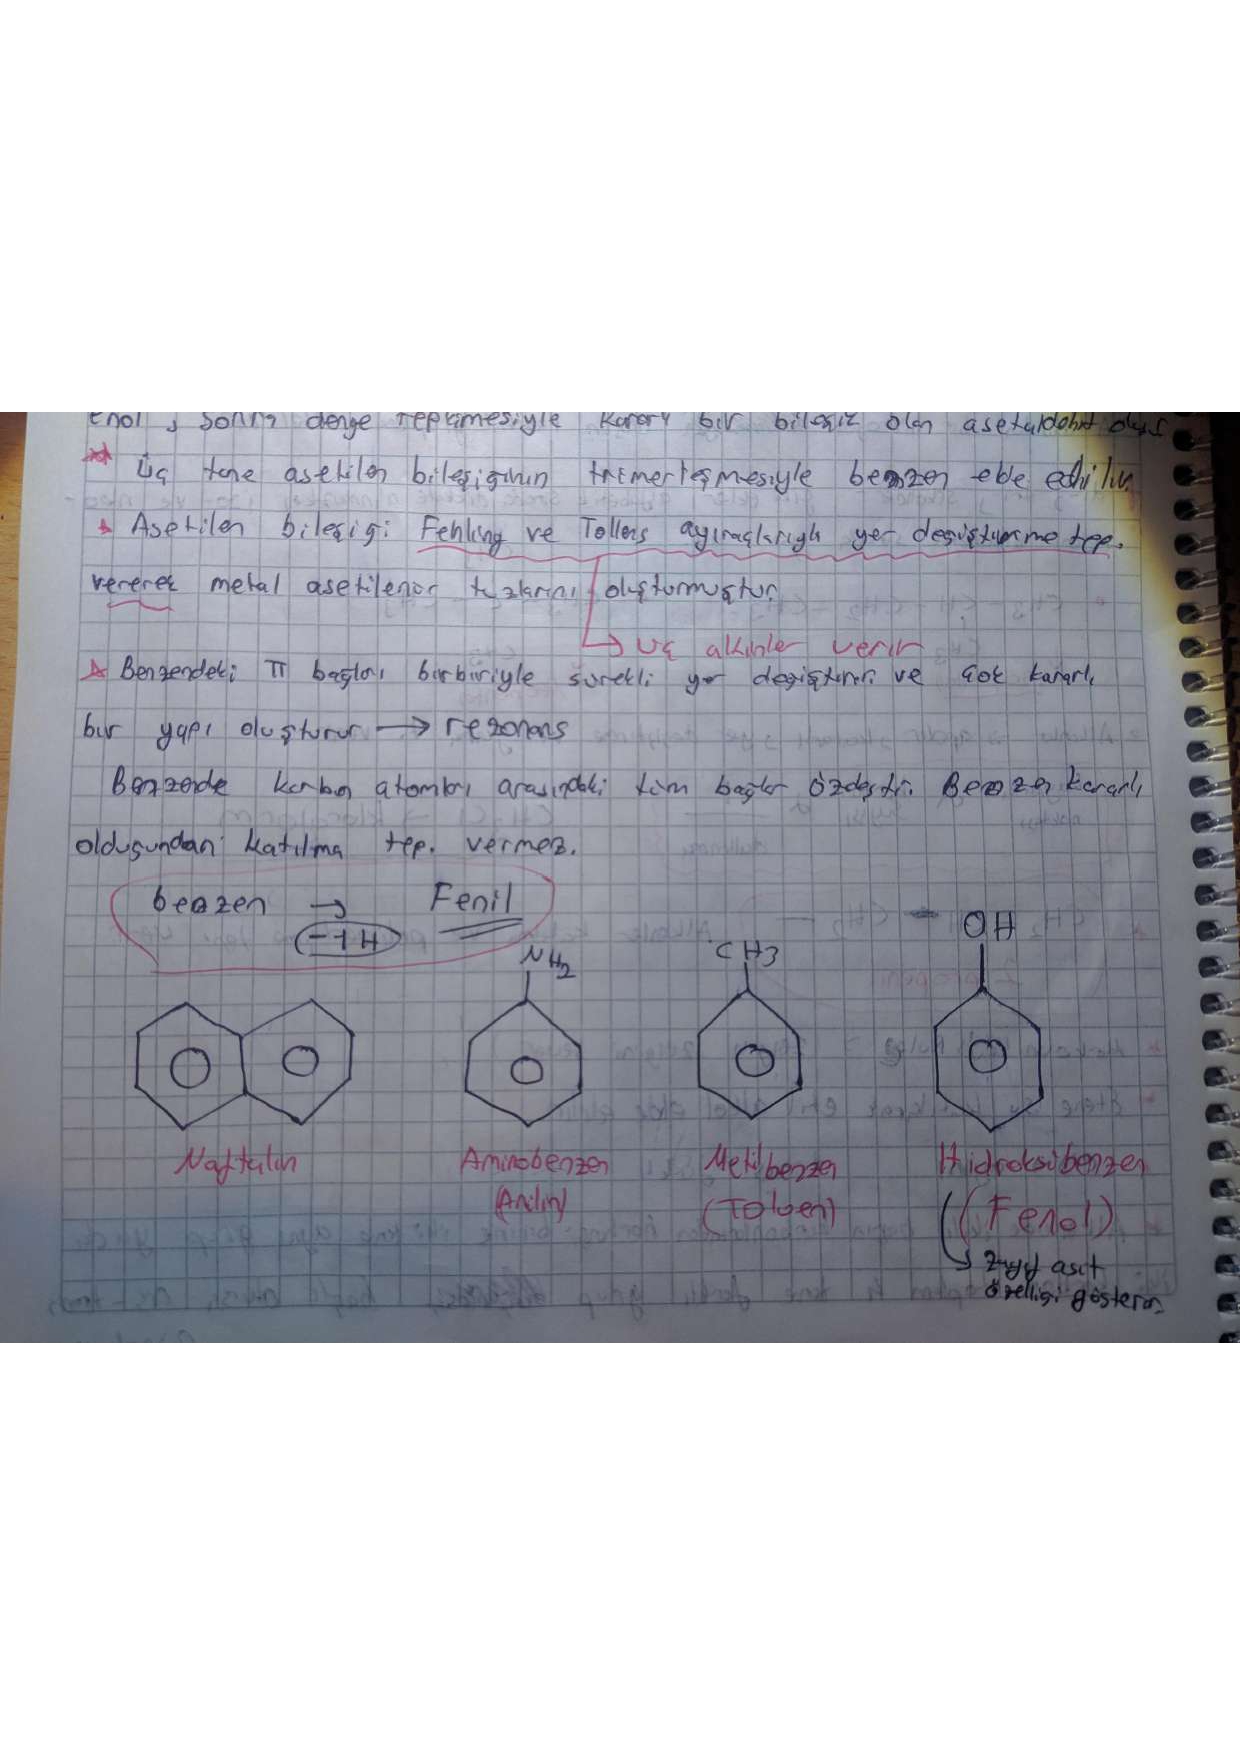 enol, sonra denge tepkimesiyle kararlı bir bileşik olan asetaldehit oluşur
* Üç tane asetilen bileşiğinin trimerleşmesiyle benzen elde edilir.
* Asetilen bileşiği Fehling ve Tollens ayıraçlarıyla yer değiştirme tep.
vererek metal asetilenür tuzlarını oluşturmuştur.
→ uç alkinler verir
* Benzendeki π bağları birbiriyle sürekli yer değiştirir ve çok kararlı
bir yapı oluşturur → rezonans
Benzende karbon atomları arasındaki tüm bağlar özdeştir. Benzen kararlı
olduğundan katılma tep. vermez.
benzen → Fenil
-1 H
NH2 CH3 OH
Naftalin Aminobenzen Metilbenzen Hidroksibenzen
(Anilin) (Toluen) (Fenol)
→ zayıf asit
özelliği gösterir.